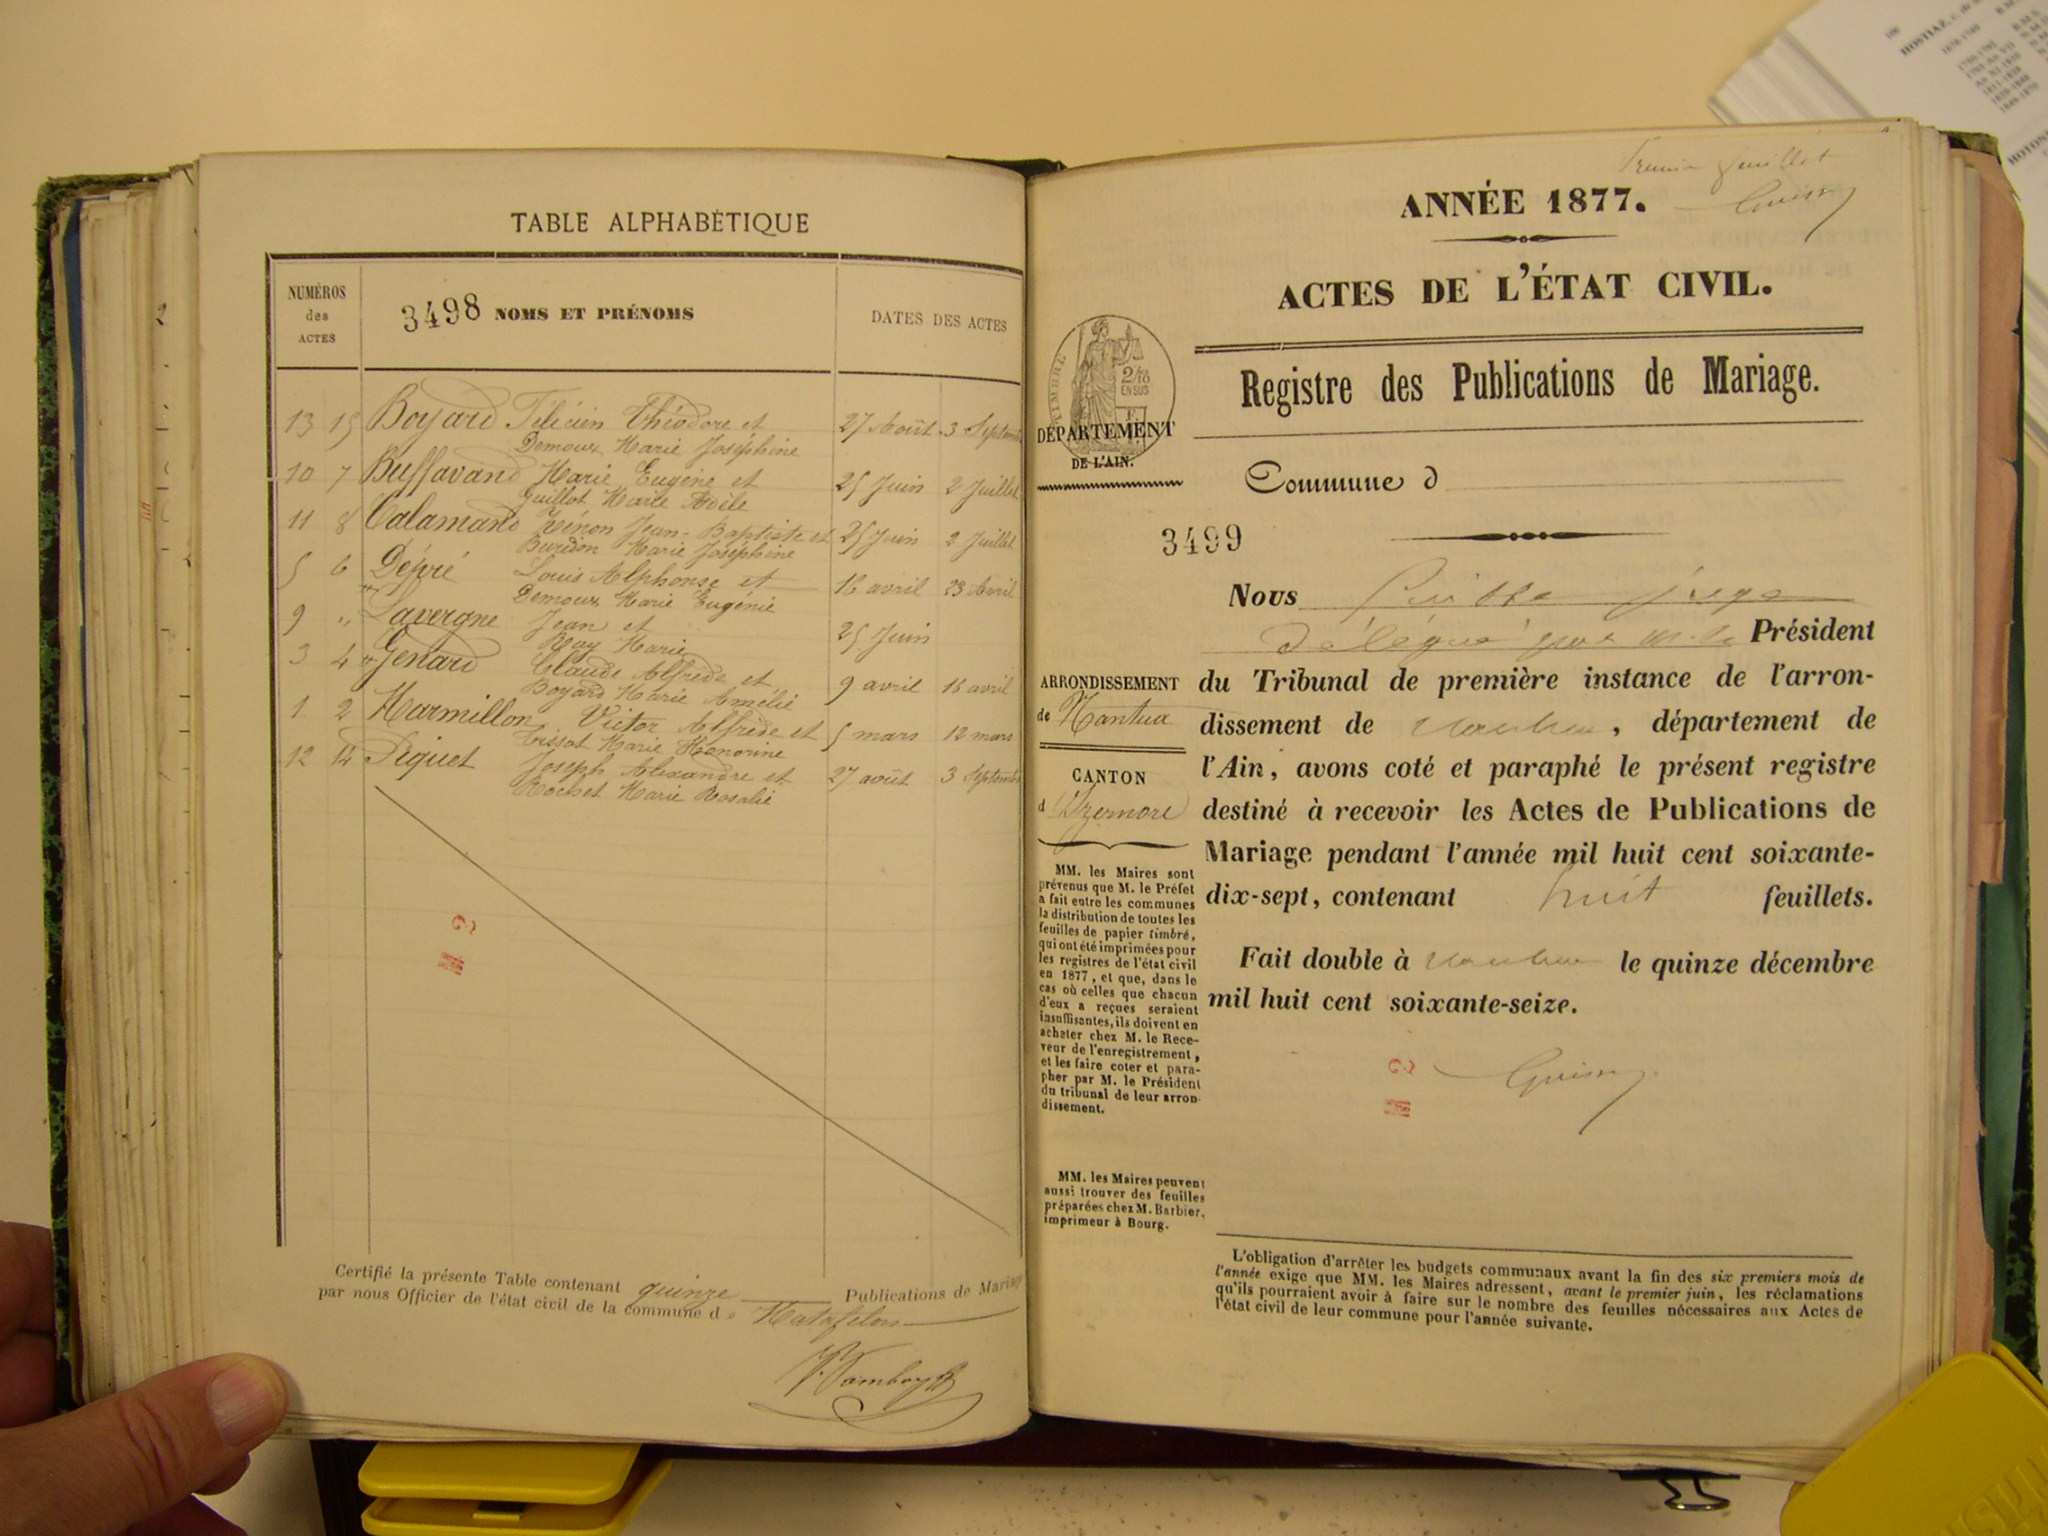 TABLE ALPHABÉTIQUE
NUMÉROS des ACTES
3498 NOMS ET PRÉNOMS
DATES DES ACTES
13 15 Boyard Félicien Théodore et 27 Août 3 Septembre
Demoux Marie Joséphine
10 7 Buffavand Marie Eugène et 25 Juin 2 Juillet
Guillot Marie Adèle
11 8 Calamand Zénon Jean-Baptiste et 25 Juin 2 Juillet
Burdon Marie Joséphine
5 6 Dépré Louis Alphonse et 16 avril 23 Avril
Demoux Marie Eugénie
9 " Lavergne Jean et 25 Juin
Ray Marie
3 4 Genard Claude Alfrede et 9 avril 16 avril
Boyard Marie Amélie
1 2 Marmillon Victor Alfrède et 5 mars 12 mars
Tissot Marie Honorine
12 14 Piquet Joseph Alexandre et 27 août 3 Septembre
Rochet Marie Rosalie
Certifié la présente Table contenant quinze Publications de Mariage
par nous Officier de l'état civil de la commune de Matafelon
ANNÉE 1877.
ACTES DE L'ÉTAT CIVIL.
Registre des Publications de Mariage.
TIMBRE
2/10
EN SUS
DÉPARTEMENT
DE L'AIN.
Commune d
3499
Nous juge
délégué par M. le Président
du Tribunal de première instance de l'arron-
dissement de Nantua, département de
l'Ain, avons coté et paraphé le présent registre
destiné à recevoir les Actes de Publications de
Mariage pendant l'année mil huit cent soixante-
dix-sept, contenant huit feuillets.
Fait double à Nantua le quinze décembre
mil huit cent soixante-seize.
ARRONDISSEMENT
de Nantua
CANTON
d'Izernore
MM. les Maires sont
prévenus que M. le Préfet
a fait entre les communes
la distribution de toutes les
feuilles de papier timbré,
qui ont été imprimées pour
les registres de l'état civil
en 1877, et que, dans le
cas où celles que chacun
d'eux a reçues seraient
insuffisantes, ils doivent en
acheter chez M. le Rece-
veur de l'enregistrement,
et les faire coter et para-
pher par M. le Président
du tribunal de leur arron-
dissement.
MM. les Maires peuvent
aussi trouver des feuilles
préparées chez M. Barbier,
imprimeur à Bourg.
L'obligation d'arrêter les budgets communaux avant la fin des six premiers mois de
l'année exige que MM. les Maires adressent, avant le premier juin, les réclamations
qu'ils pourraient avoir à faire sur le nombre des feuilles nécessaires aux Actes de
l'état civil de leur commune pour l'année suivante.